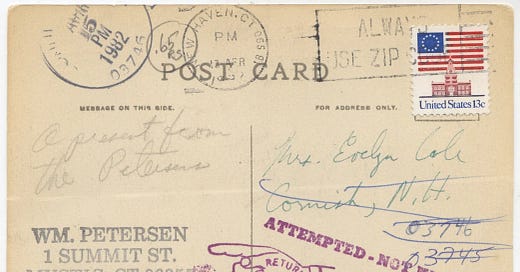 PM
1982
03746
65
NEW HAVEN, CT
PM
APR
ALWAYS
USE ZIP
United States 13c
POST CARD
MESSAGE ON THIS SIDE.
FOR ADDRESS ONLY.
A present from
the Petersens
Mrs. Evelyn Cole
Cornish, N.H.
03746
03745
WM. PETERSEN
1 SUMMIT ST.
MYSTIC CT
ATTEMPTED - NOT
RETURN